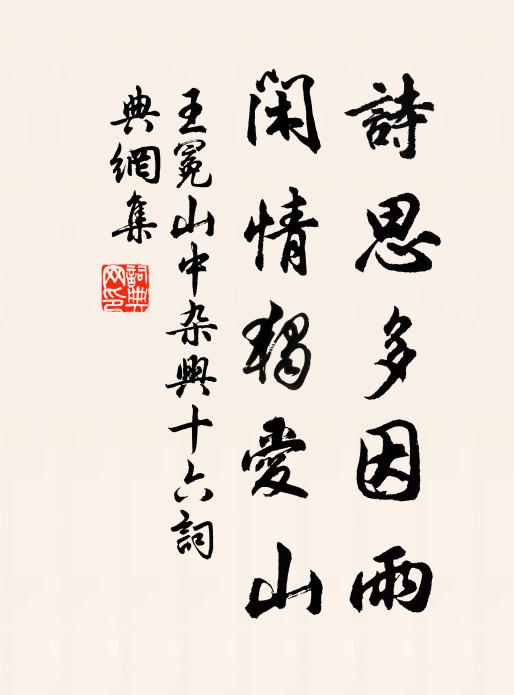 詩思多因雨
閑情獨愛山
王冕山中杂興十六詞
典網集
詞典网印